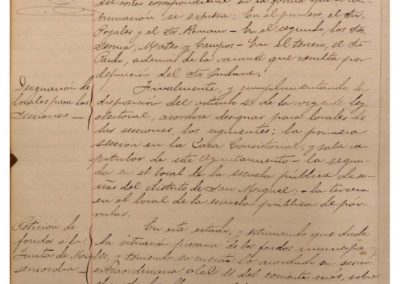 del voto correspondiente en la forma que a con-
tinuación se expresa: En el primero, el Sr.
Rosales y el Sr. Romano - En el segundo, los Sres.
Serna, Mateo y Campos - En el tercero, el Sr.
Pardo, además de la vacante que resulta por
defunción del Sr.
Designación de
locales para las
Secciones -
Finalmente, y cumplimentando la
disposición del artículo de la vigente ley
electoral, acordose designar para locales de
las secciones los siguientes: la primera
sección en la Casa Consistorial, y sala ca-
pitular de este Ayuntamiento - la segun-
da en el local de la escuela pública de
del distrito de San Miguel, - la tercera
en el local de la escuela pública de pár-
vulos.
Petición de
fondos a la
Junta de
En este estado, y estimando que dada
la situación precaria de los fondos municipa-
les, y teniendo en cuenta lo acordado en sesión
extraordinaria del 11 del corriente mes, sobre